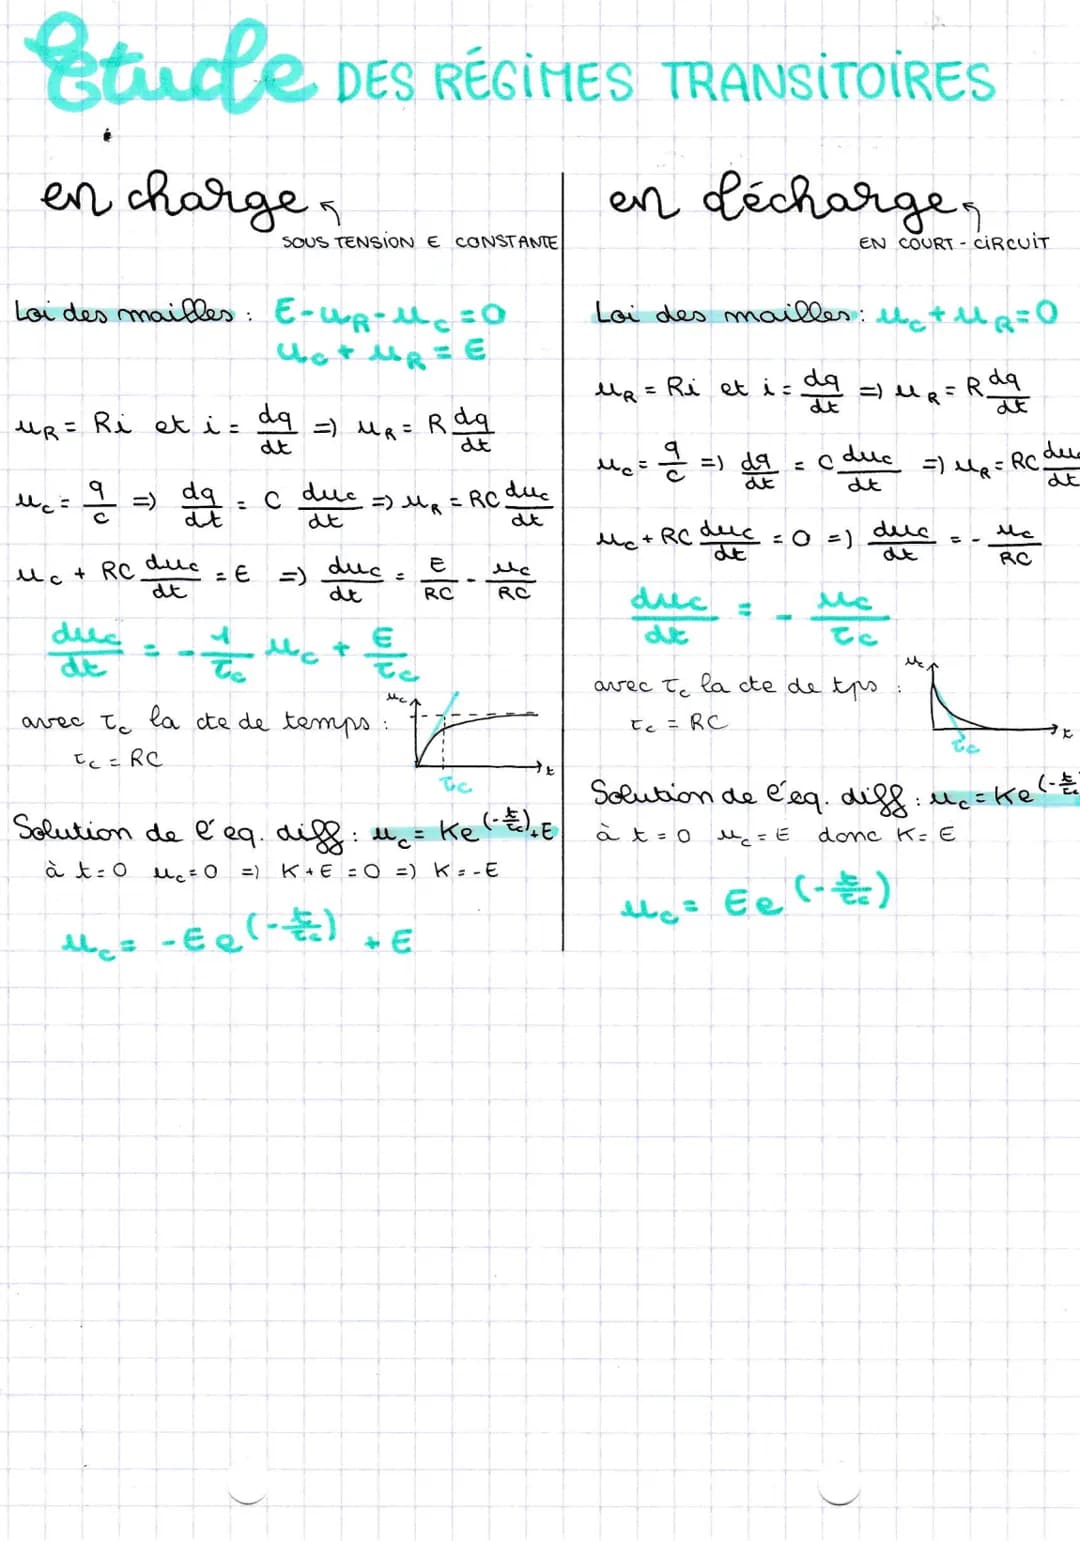 Etude DES RÉGIMES TRANSITOIRES
en charge
SOUS TENSION E CONSTANTE
Loi des mailles : E-u_R-u_c=0
u_c+u_R=E
u_R = Ri et i = dq/dt => u_R = R dq/dt
u_c = q/c => dq/dt = C du_c/dt => u_R = RC du_c/dt
u_c + RC du_c/dt = E => du_c/dt = E/RC - u_c/RC
du_c/dt = - 1/τ_c u_c + E/τ_c
avec τ_c la cte de temps :
τ_c = RC
u_c
t
τ_c
Solution de l'eq. diff : u_c = Ke^(-t/τ_c)+E
à t=0 u_c=0 => K+E=0 => K=-E
u_c = -Ee^(-t/τ_c) + E
en décharge
EN COURT-CIRCUIT
Loi des mailles : u_c+u_R=0
u_R = Ri et i = dq/dt => u_R = R dq/dt
u_c = q/c => dq/dt = C du_c/dt => u_R = RC du_c/dt
u_c + RC du_c/dt = 0 => du_c/dt = - u_c/RC
du_c/dt = - u_c/τ_c
avec τ_c la cte de tps :
τ_c = RC
u_c
t
τ_c
Solution de l'eq. diff : u_c = Ke^(-t/τ_c)
à t=0 u_c=E donc K=E
u_c = Ee^(-t/τ_c)